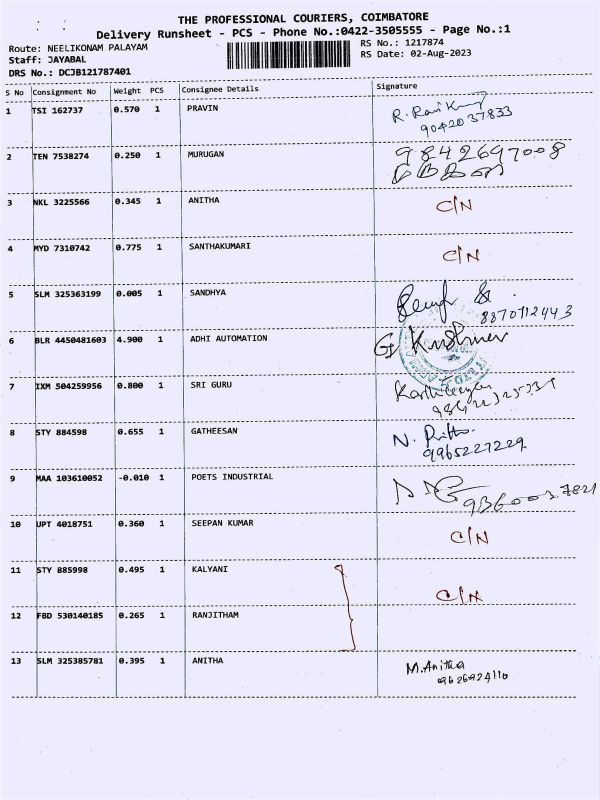 THE PROFESSIONAL COURIERS, COIMBATORE
Delivery Runsheet - PCS - Phone No.:0422-3505555 - Page No.:1
Route: NEELIKONAM PALAYAM
RS No.: 1217874
Staff: JAYABAL
RS Date: 02-Aug-2023
DRS No.: DCJB121787401
S No Consignment No Weight PCS Consignee Details Signature
1 TSI 162737 0.570 1 PRAVIN R. Ravi Kumar
9042037833
2 TEN 7538274 0.250 1 MURUGAN 9842697008
3 NKL 3225566 0.345 1 ANITHA C/N
4 MYD 7310742 0.775 1 SANTHAKUMARI C/N
5 SLM 325363199 0.005 1 SANDHYA
8870712443
6 BLR 4450481603 4.900 1 ADHI AUTOMATION G
7 IXM 504259956 0.800 1 SRI GURU Karthikeyan
8 STY 884598 0.655 1 GATHEESAN N.
9965227229
9 MAA 103610052 -0.010 1 POETS INDUSTRIAL
9360037821
10 UPT 4018751 0.360 1 SEEPAN KUMAR C/N
11 STY 885998 0.495 1 KALYANI C/N
12 FBD 530140185 0.265 1 RANJITHAM
13 SLM 325385781 0.395 1 ANITHA M.Anitha
9626924110